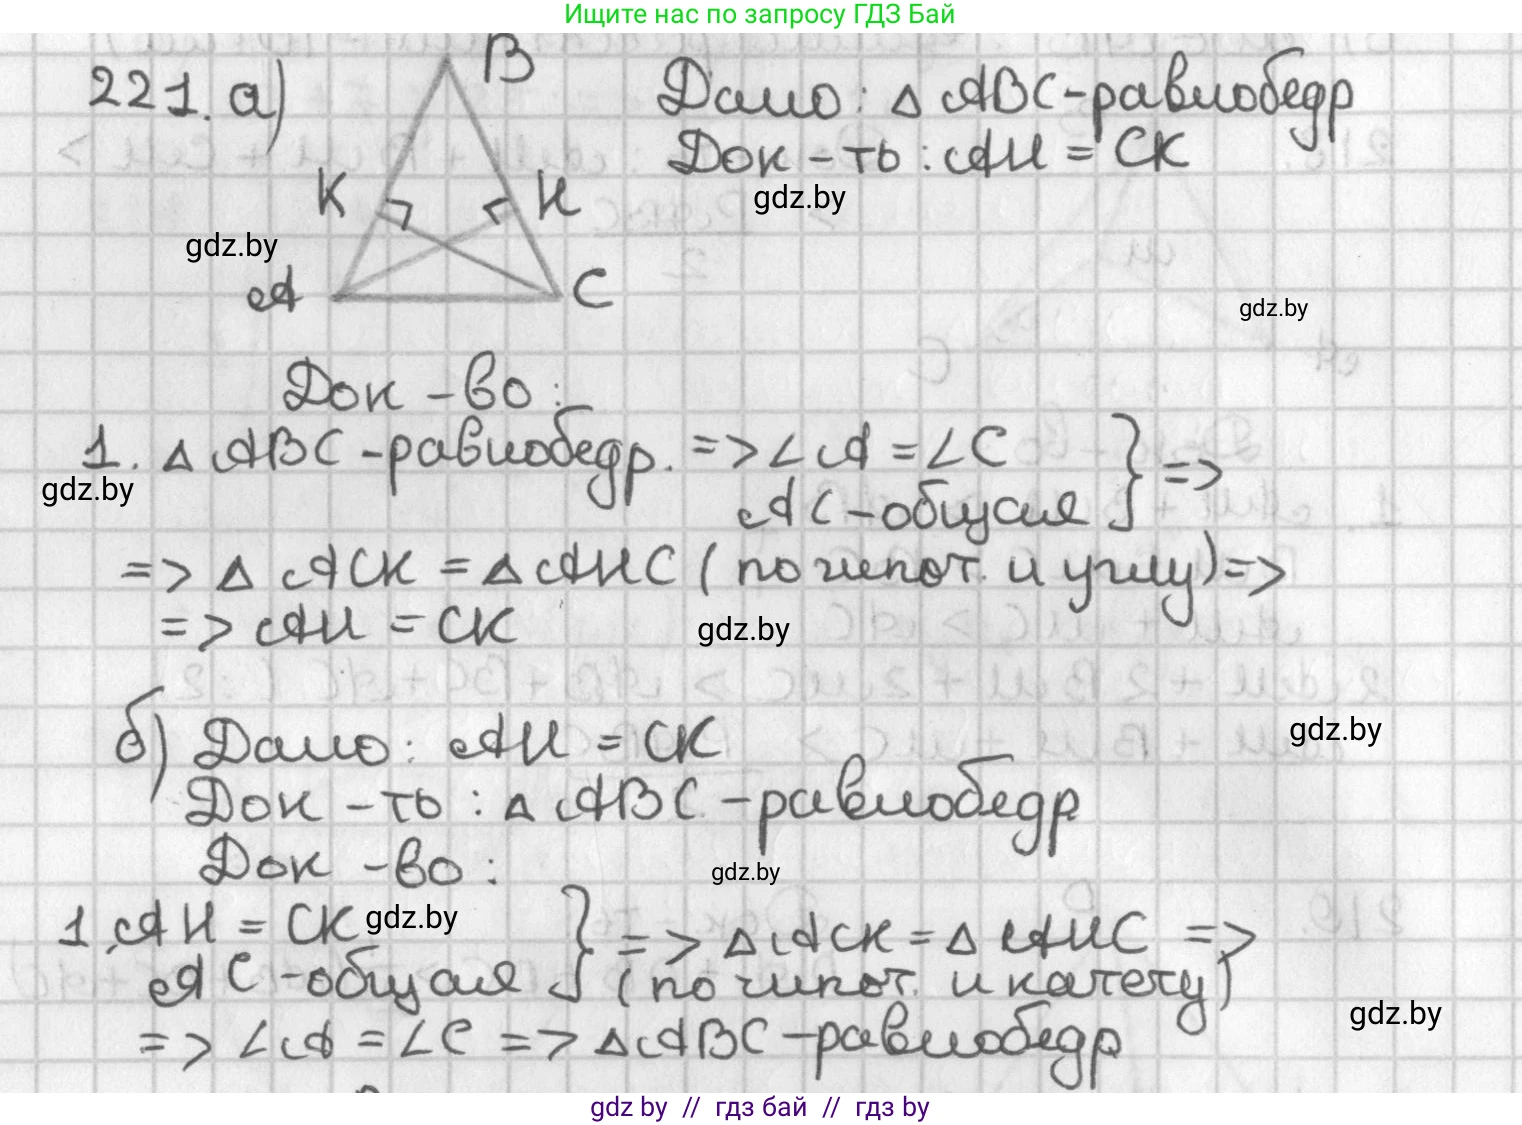 Ищите нас по запросу ГДЗ Бай
221. а)
B
K
H
A
C
Дано: △ ABC - равнобедр
Док - ть: AH = CK
gdz.by
gdz.by
gdz.by
Док - во:
1. △ ABC - равнобедр. => ∠A = ∠C
AC - общая } =>
gdz.by
=> △ ACK = △ AHC (по гипот. и углу) =>
=> AH = CK
gdz.by
б) Дано: AH = CK
gdz.by
Док - ть: △ ABC - равнобедр
Док - во:
gdz.by
1. AH = CK
gdz.by
AC - общая } => △ ACK = △ AHC =>
(по гипот. и катету)
gdz.by
=> ∠A = ∠C => △ ABC - равнобедр
gdz by // гдз бай // гдз by